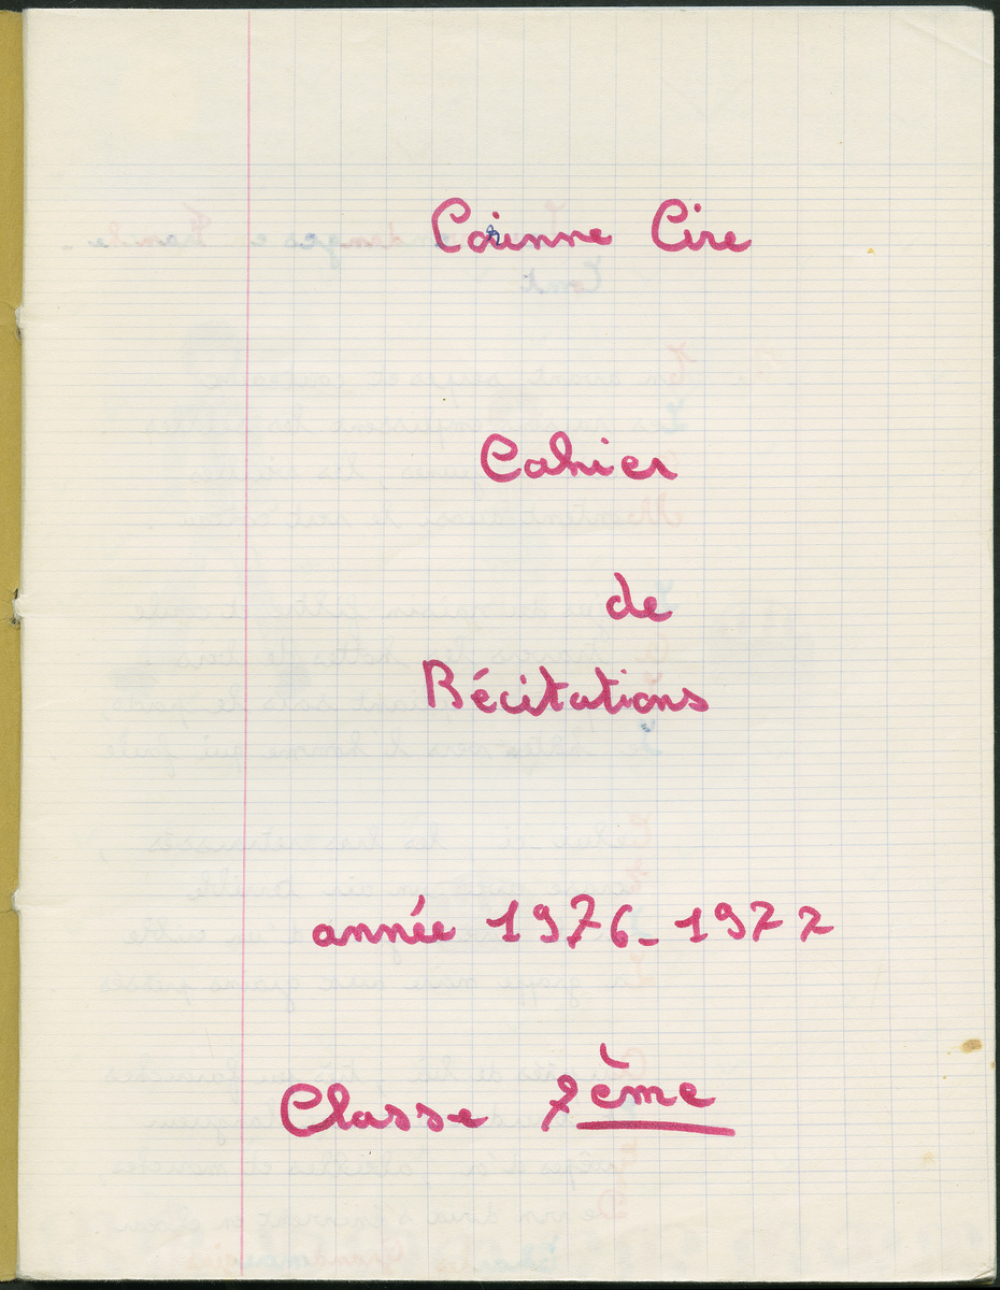 Corinne Cire
Cahier
de
Récitations
année 1976-1977
Classe 7ème